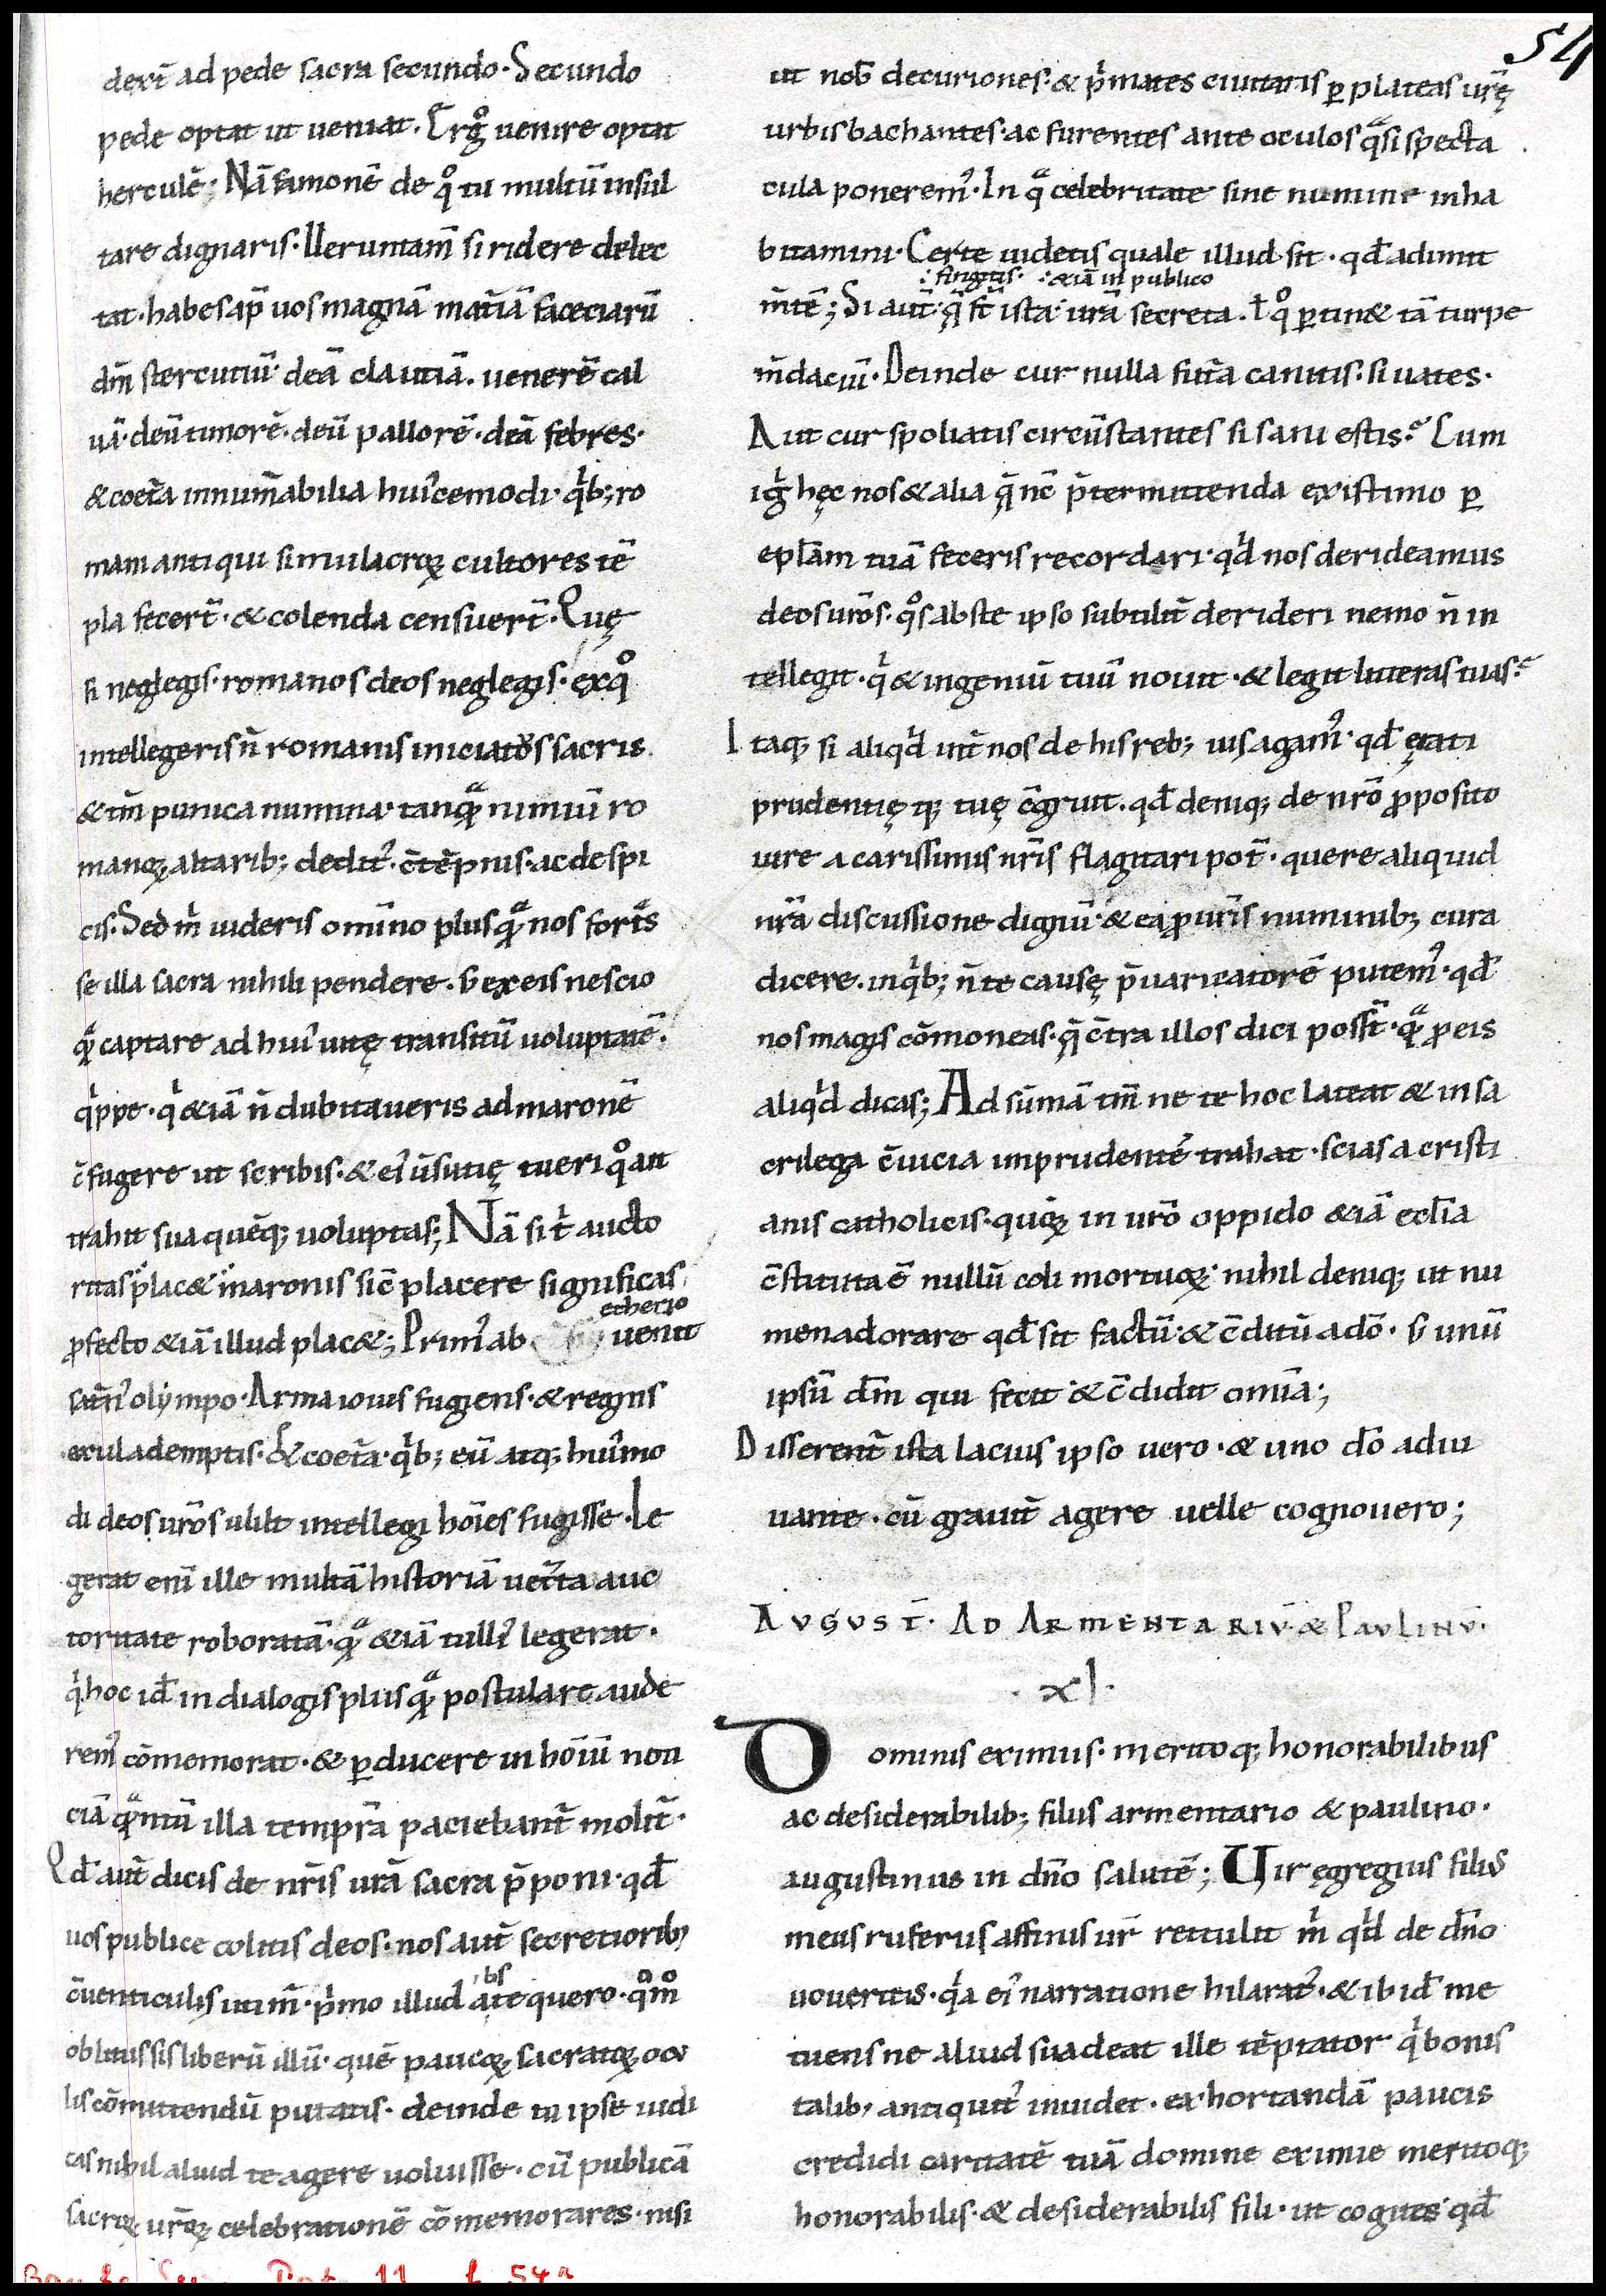 54
dext̄ ad pede sacra secundo · Secundo
pede optat ut ueniat · Ergͦ uenire optat
herculē; Nā fimonē de qͦ tu multū insul
tare dignaris · Uerūtam̄ si ridere delec
tat · habes ap̄ uos magnā mat̄iā faceciarū
dm̄ stercutiū · deā cluatiā · uenerē cal
uā · deū timorē · deū pallorē · deā febres ·
& coet̄a innum̄abilia hui᾽cemodi · qⁱb; ro
mani antiqui simulacroꝝ cultores tē
pla fecer̄t · & colenda censuer̄t · Quę
si neglegis · romanos deos neglegis · ex qͦ
intellegeris n̄ romanis iniciatos sacris
& tm̄ punica numina · tanqͣ nimiū ro
manoꝝ altarib; dedit᾽ · c̄tēpnis · ac despi
cis · Sed mⁱ uideris omīno plusqͣ nos fortas
se illa sacra nihili pendere · s; ex eis nescio
qͣ captare ad hui᾽ uitę transitū uoluptatē ·
qⁱppe · qⁱ &iā n̄ dubitaueris ad maronē
c̄fugere ut scribis · & ei᾽ ūsutię tueri qͦ ait
trahit sua quēq; uoluptas; Nā si tⁱ aucto
ritas placꝫ maronis sic̄ placere significas
ꝓfecto &iā illud plac&; Prim᾽ ab uenit
etherio
sat̄n᾽ olympo · Arma iouis fugiens · & regnis
exul ademptis · & coet̄a · qⁱb; eū atq; hui᾽mo
di deos ur̄os ulīlt intellegi hoīes fugisse · Le
gerat eni᾽ ille multā historiā uet̄ta auc
toritate roboratā · qͣ &iā tulli᾽ legerat ·
qⁱ hoc id̄ in dialogis plusqͣ postulare aude
rem᾽ cōmemorat · & ꝑducere in hoīū noti
ciā qͣntū illa tempr̄a paciebant̄ molit̄ ·
Qd̄ aūt dicis de nr̄is ur̄a sacra p̄poni · qd̄
uos publice colitis deos · nos aūt secretiorib;
c̄uenticulis utim̄ · pⁱmo illud a te quero · qͦm
bs
oblitus sis liberū illū · quē paucoꝝ sacratoꝝ ocu
lis cōmittendū putatis · deinde tu ipse iudi
cas nihil aliud te agere uoluisse · cū publicā
sacroꝝ ur̄oꝝ celebrationē cōmemorares · nisi
ut nob̄ decuriones · & pⁱmates ciuitatis ꝑ plateas ur̄ę
urbis bachantes · ac furentes ante oculos qͣsi specta
cula ponerem᾽ · In qͣ celebritate sine numine inha
bitamini · Certe uidetis quale illud sit · qd̄ adimit
fingitis · &iā in publico
m̄tē; Si aūt · q̨̄ ft̄ ista · ur̄a secreta · t̄ qͦ ꝑtin& tā turpe
m̄daciū · Deinde cur nulla fut̄a canitis · si uates ·
Aut cur spoliatis circūstantes si sani estis? Cum
igⁱ hęc nos & alia q̨̄ nc̄ p̄termittenda existimo ꝑ
epl̄am tuā feceris recordari · qⁱd nos derideamus
deos ur̄os · qͦs abs te ipso subtilit̄ derideri nemo n̄ in
tellegit · qⁱ & ingeniū tuū nouit · & legit litteras tuas?
Itaq; si aliqⁱd int̄ nos de his reb; uis agam᾽ · qd̄ ętati
prudentięq; tuę c̄gruit · qd̄ deniq; de nr̄o ꝓposito
iure a carissimis nr̄is flagitari pot̄ · quere aliquid
nr̄a discussione dignū · & ea ꝓ ur̄is numinib; cura
dicere · in qⁱb; n̄ te causę p̄uaricatorē putem᾽ · qd̄
nos magis cōmoneas · q̨̄ c̄tra illos dici possit̄ · qͣ ꝓ eis
aliqⁱd dicas; Ad sūmā tm̄ ne te hoc lateat & in sa
crilega c̄uicia imprudentē trahat · scias a cristi
anis catholicis · quoꝝ in ur̄o oppido &iā ecl̄ia
c̄stituta ē nullū coli mortuoꝝ · nihil deniq; ut nu
men adorare qd̄ sit factū · & c̄ditū a dō · s; unū
ipsū dm̄ qui fecit & c̄didit omīa;
Disserent̄ ista lacius ipso uero · & uno dō adiu
uante · cū grauit̄ agere uelle cognouero;
AUGUST̄ · AD ARMENTARIŪ · & PAULINŪ ·
· xl ·
Dominis eximiis · meritoq; honorabilibus
ac desiderabilib; filiis armentario & paulino ·
augustinus in dn̄o salutē; Uir ęgregius filius
meus ruferus affinis ur̄ rettulit mⁱ qⁱd de dn̄o
uoueritis · qⁱa ei᾽ narratione hilarat᾽ · & ibid̄ me
tuens ne aliud suadeat ille tēptator qⁱ bonis
talib; antiquit᾽ inuidet · exhortandā paucis
credidi caritatē tuā domine eximie meritoq;
honorabilis · & desiderabilis fili · ut cogites qd̄